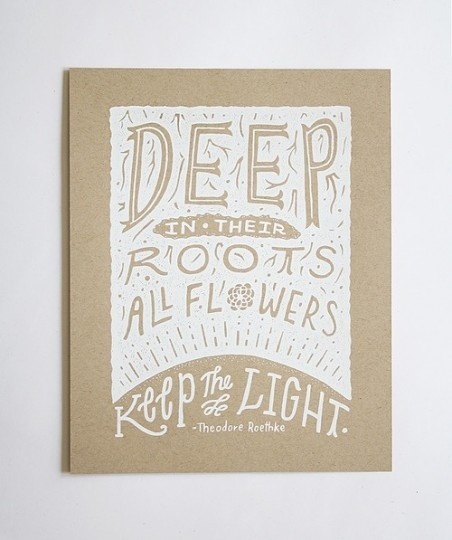 DEEP
IN • THEIR
ROOTS
ALL FLOWERS
KEEP THE LIGHT.
-Theodore Roethke